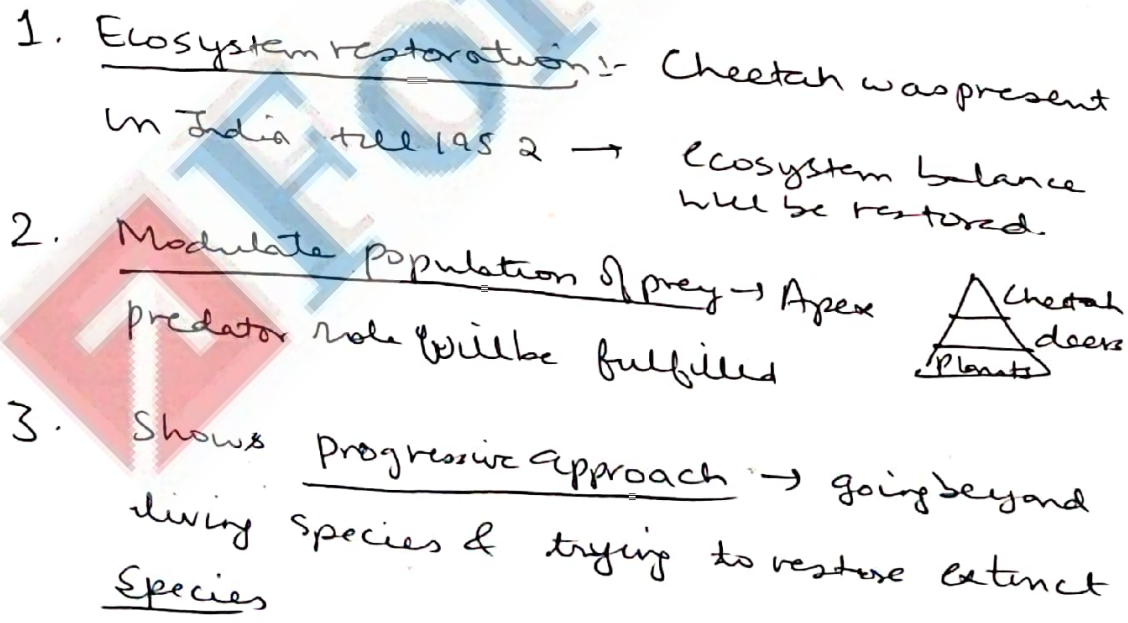 1. Ecosystem restoration :- Cheetah was present
in India till 1952 → ecosystem balance
will be restored.
2. Modulate population of prey → Apex
predator role will be fulfilled
Cheetah
deers
Plants
3. Shows progressive approach → going beyond
living species & trying to restore extinct
species